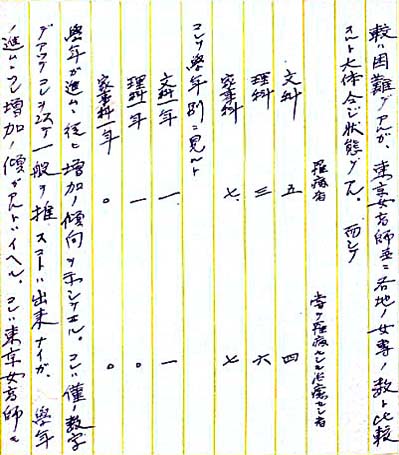 較ハ困難デアルガ、東京女高師並ニ各地ノ女専ノ数ト比較
スルト大体今ジ状態デアル。而シテ
罹病者 嘗テ罹病セルモ治癒セシ者
文科 五 四
理科 三 六
家事科 七 七
コレヲ學年別ニ見ルト
文科一年 一 一
理科一年 一 〇
家事科一年 〇 〇
學年が進ムニ従ヒ増加ノ傾向ヲ示シテヰル。コレハ僅ノ数字
デアツテコレヲ以テ一般ヲ推スコトハ出来ナイガ、學年
ノ進ムニツレ増加ノ傾ガアルトハイヘル。コレハ東京女高師モ